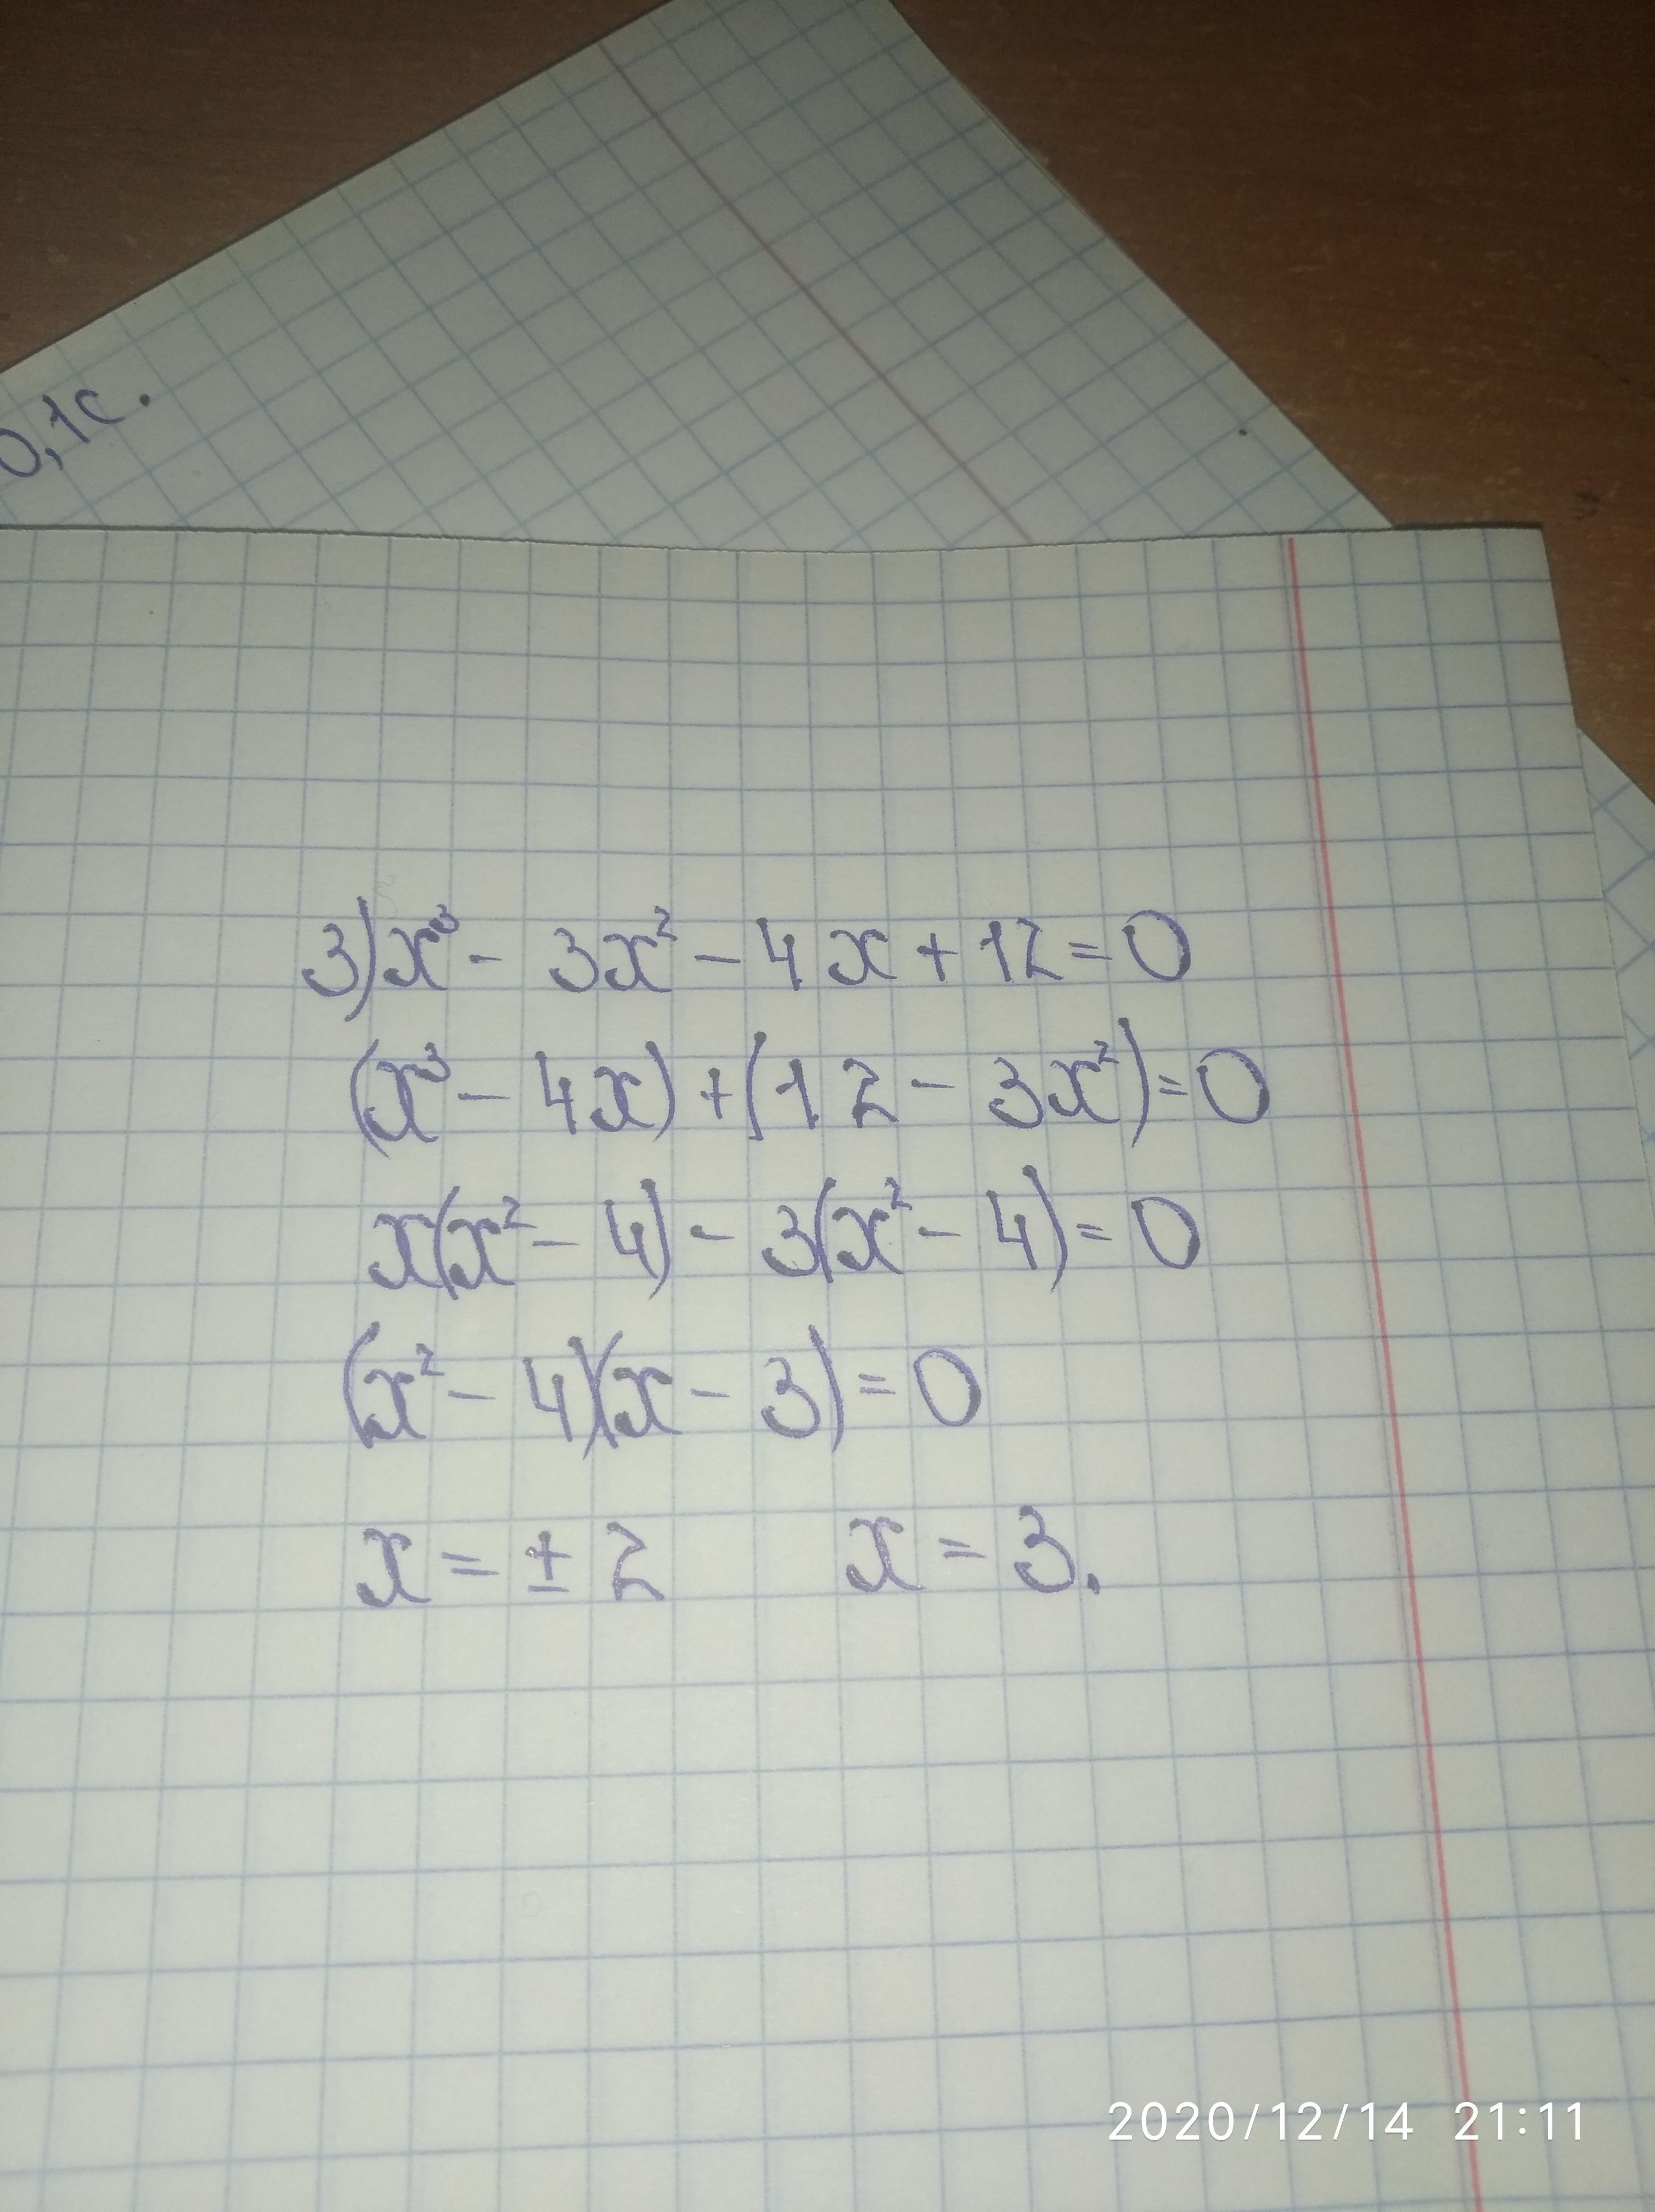 0,1с.
3) x³ - 3x² - 4x + 12 = 0
(x³ - 4x) + (12 - 3x²) = 0
x(x² - 4) - 3(x² - 4) = 0
(x² - 4)(x - 3) = 0
x = ± 2 x = 3.
2020/12/14 21:11